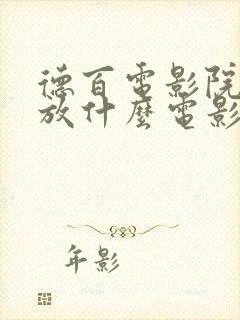 德百電影院
放什麼電影
年影